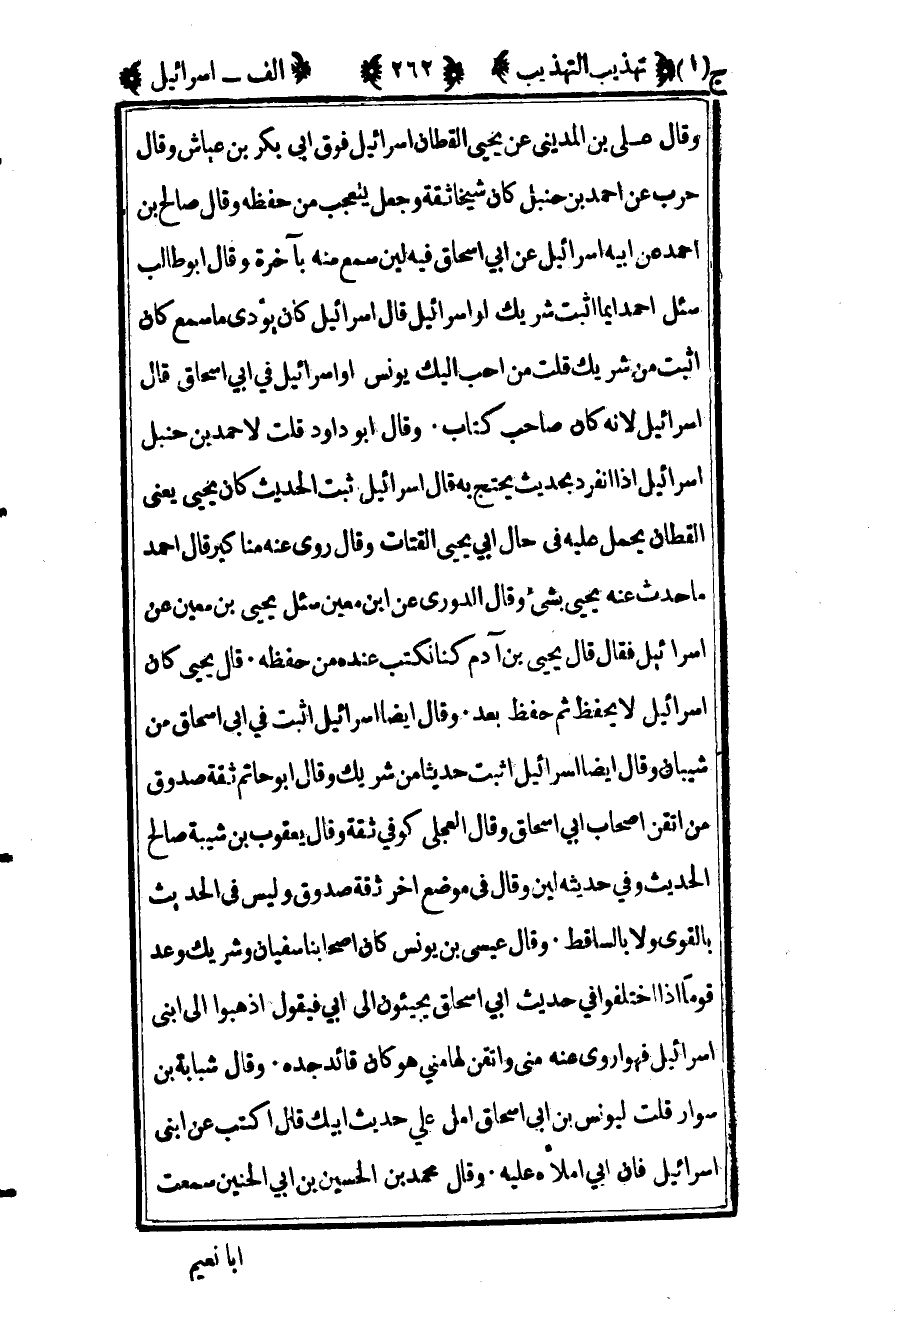 ج (١) ﴿ تهذيب التهذيب ﴾ ﴿ ٢٦٢ ﴾ ﴿ الف - اسرائيل ﴾
وقال علي بن المديني عن يحيى القطان اسرائيل فوق ابي بكر بن عياش وقال
حرب عن احمد بن حنبل كان شيخا ثقة وجعل يتعجب من حفظه وقال صالح بن
احمد عن ابيه اسرائيل عن ابي اسحاق فيه لين سمع منه بآخرة وقال ابو طالب
سئل احمد ايما اثبت شريك او اسرائيل قال اسرائيل كان يؤدى ما سمع كان
اثبت من شريك قلت من احب اليك يونس او اسرائيل في ابي اسحاق قال
اسرائيل لانه كان صاحب كتاب · وقال ابو داود قلت لاحمد بن حنبل
اسرائيل اذا انفرد بحديث يحتج به قال اسرائيل ثبت الحديث كان يحيى يعنى
القطان يحمل عليه فى حال ابي يحيى القتات وقال روى عنه مناكير قال احمد
ما حدث عنه يحيى بشئ وقال الدورى عن ابن معين سئل يحيى بن معين عن
اسرائيل فقال قال يحيى بن آدم كنا نكتب عنده من حفظه · قال يحيى كان
اسرائيل لا يحفظ ثم حفظ بعد · وقال ايضا اسرائيل اثبت في ابى اسحاق من
شيبان وقال ايضا اسرائيل اثبت حديثا من شريك وقال ابو حاتم ثقة صدوق
من اتقن اصحاب ابي اسحاق وقال العجلى كوفي ثقة وقال يعقوب بن شيبة صالح
الحديث وفي حديثه لين وقال فى موضع اخر ثقة صدوق وليس فى الحديث
بالقوى ولا بالساقط · وقال عيسى بن يونس كان اصحابنا سفيان وشريك وعد
قوماً اذا اختلفوا في حديث ابي اسحاق يجيئون الى ابي فيقول اذهبوا الى ابنى
اسرائيل فهو اروى عنه منى واتقن لها مني هو كان قائد جده · وقال شبابة بن
سوار قلت ليونس بن ابى اسحاق امل علي حديث ابيك قال اكتب عن ابنى
اسرائيل فان ابي املاه عليه · وقال محمد بن الحسين بن ابي الحنين سمعت
ابا نعيم